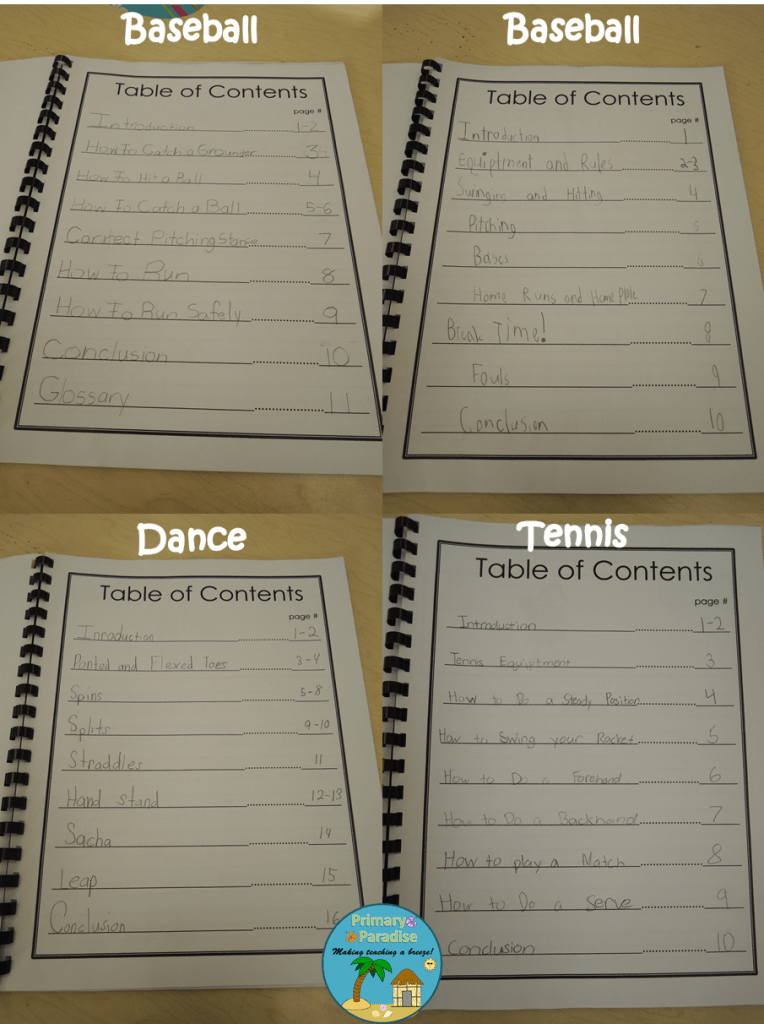 Baseball
Table of Contents
page #
Introduction 1-2
How To Catch a Grounder 3
How To Hit a Ball 4
How To Catch a Ball 5-6
Correct Pitching Stance 7
How To Run 8
How To Run Safely 9
Conclusion 10
Glossary 11
Baseball
Table of Contents
page #
Introduction 1
Equiptment and Rules 2-3
Swinging and Hitting 4
Pitching 5
Bases 6
Home Runs and Home Plate 7
Break Time! 8
Fouls 9
Conclusion 10
Dance
Table of Contents
page #
Inroduction 1-2
Ponted and Flexed Toes 3-4
Spins 5-8
Splits 9-10
Straddles 11
Hand stand 12-13
Sacha 14
Leap 15
Conclusion 16
Tennis
Table of Contents
page #
Introduction 1-2
Tennis Equiptment 3
How to Do a Steady Position 4
How to Swing your Racket 5
How to Do a Forehand 6
How to Do a Backhand 7
How to play a Match 8
How to Do a Serve 9
Conclusion 10
Primary
Paradise
Making teaching a breeze!